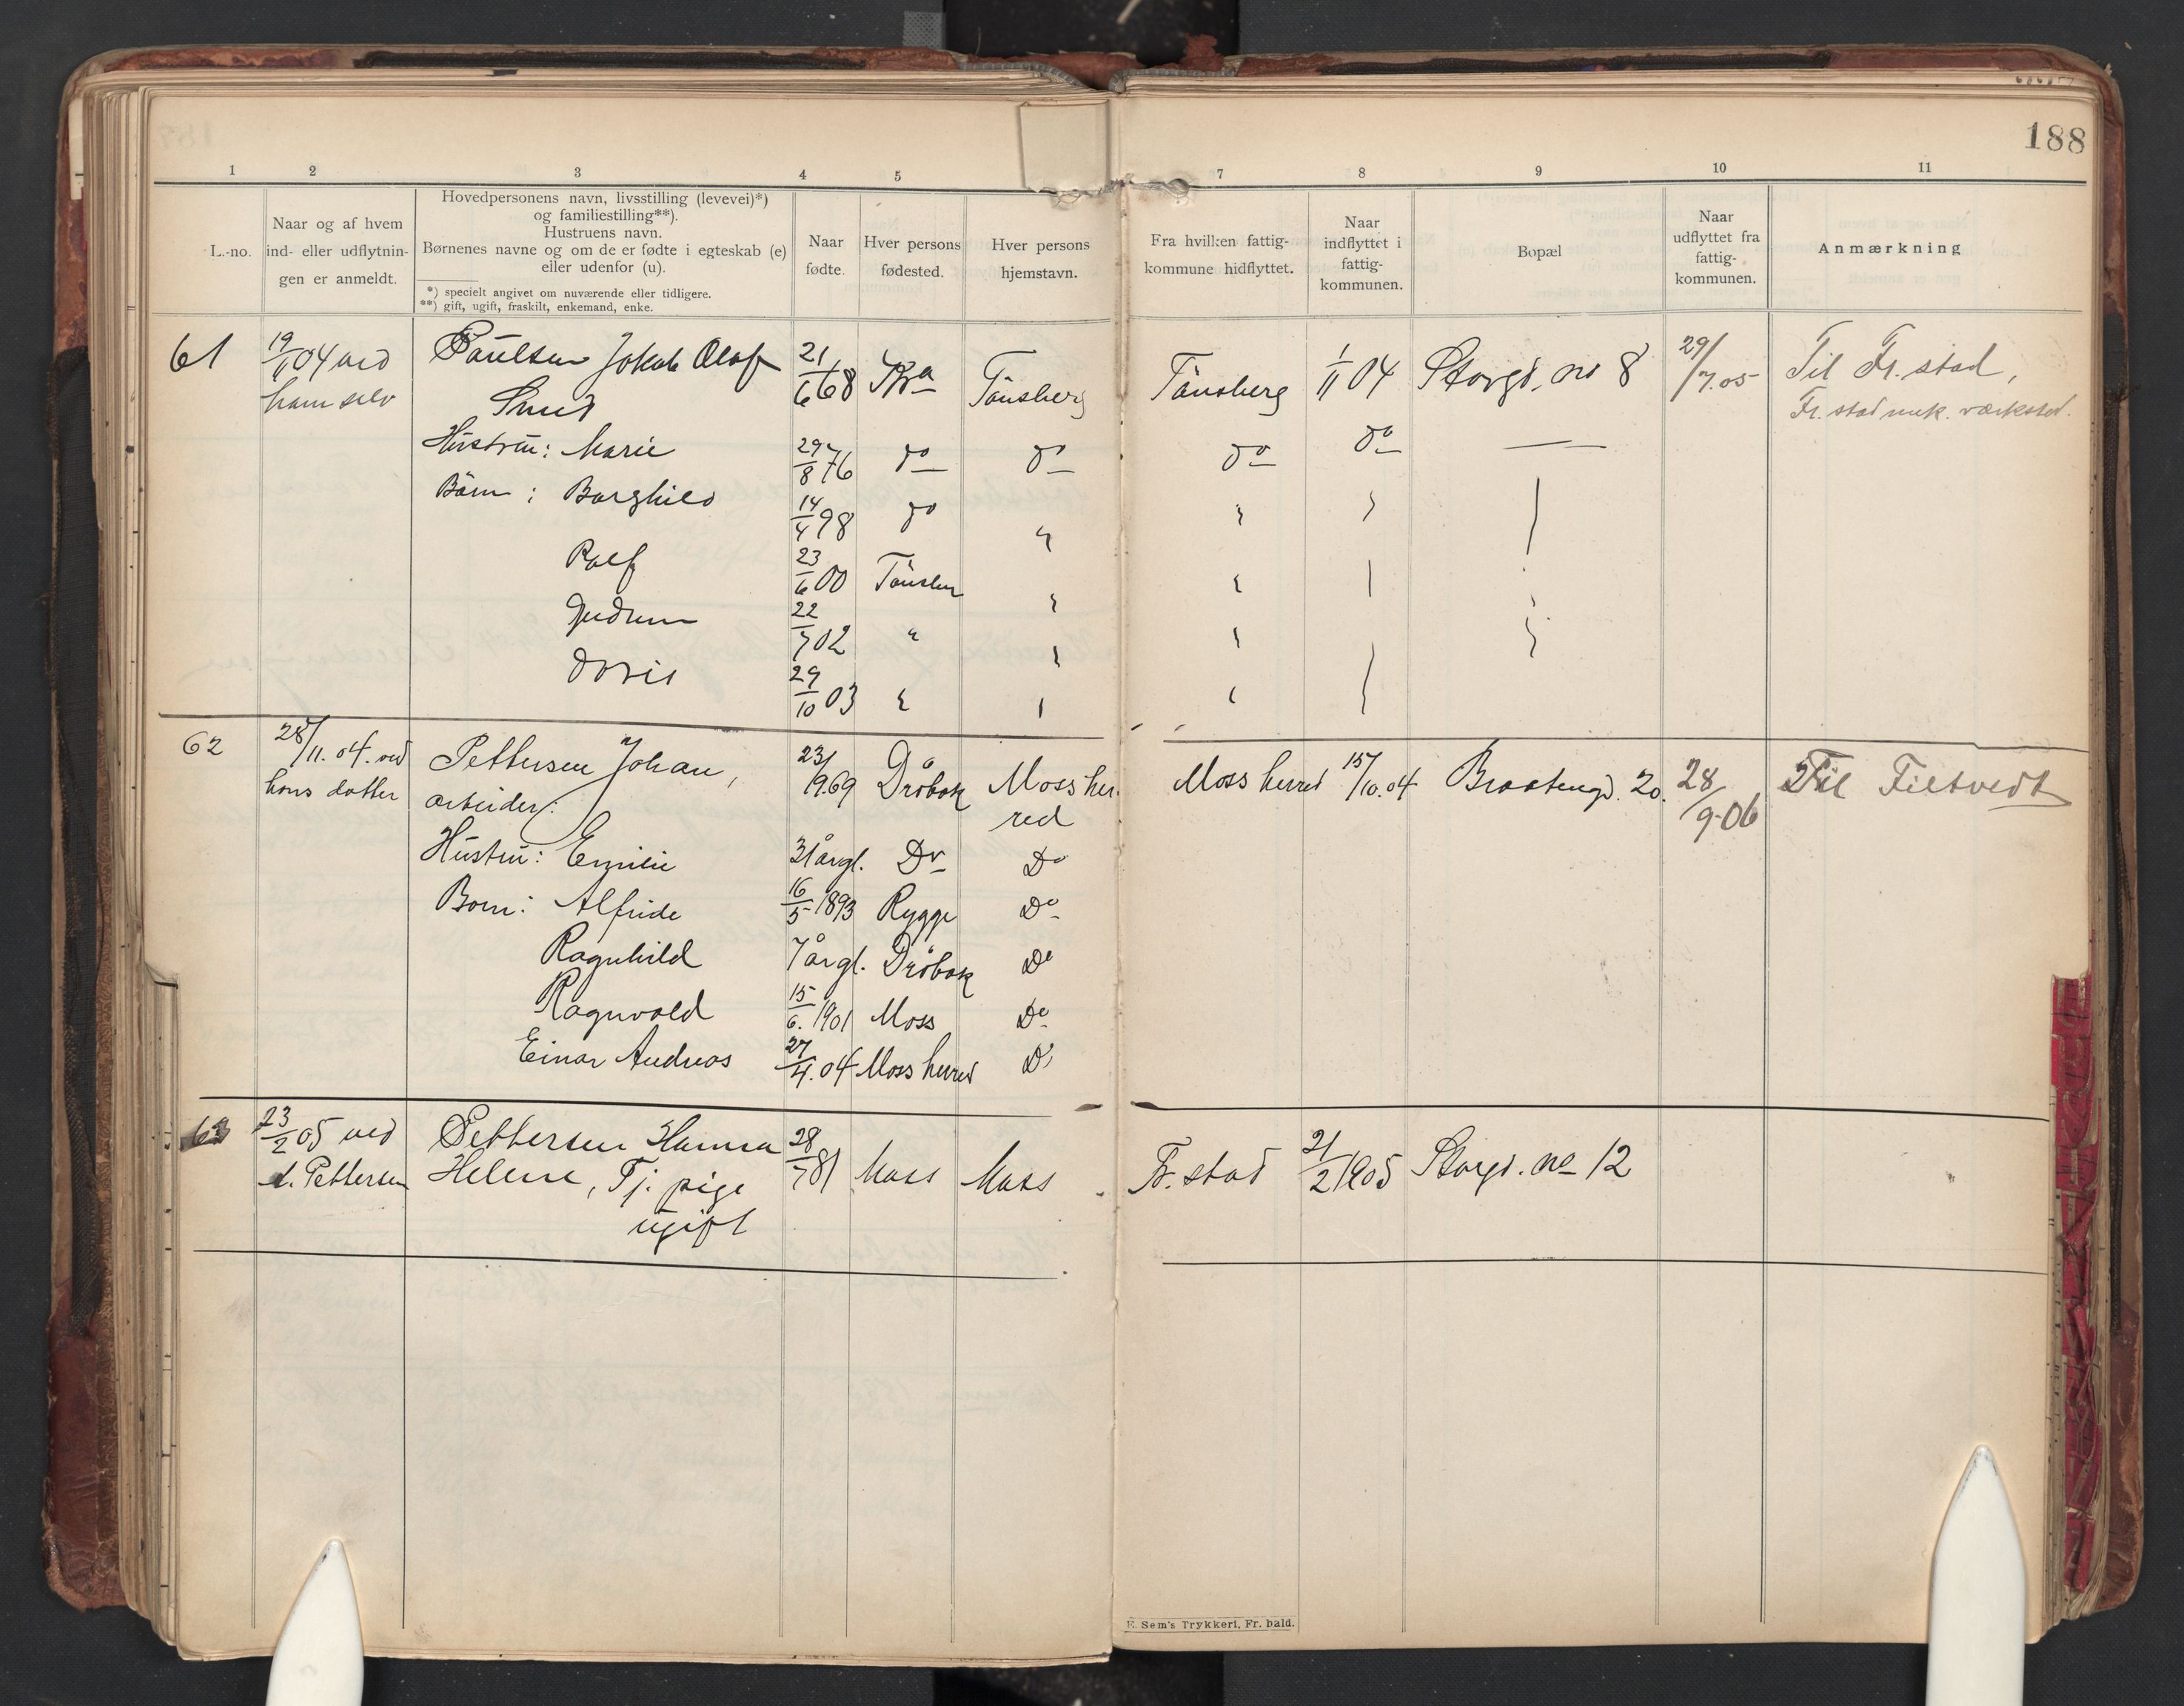 188
1 2 3 4 5 7 8 9 10 11
L.-no.
Naar og af hvem
ind- eller udflytnin-
gen er anmeldt.
Hovedpersonens navn, livsstilling (levevei)*)
og familiestilling**).
Hustruens navn.
Børnenes navne og om de er fødte i egteskab (e)
eller udenfor (u).
*) specielt angivet om nuværende eller tidligere.
**) gift, ugift, fraskilt, enkemand, enke.
Naar
fødte.
Hver persons
fødested.
Hver persons
hjemstavn.
Fra hvilken fattig-
kommune hidflyttet.
Naar
indflyttet i
fattig-
kommunen.
Bopæl
Naar
udflyttet fra
fattig-
kommunen.
Anmærkning
61 19/ 04 ved Paulsen Jokab Olaf 21/6 68 Kra Tönsberg Tönsberg 1/11 04 Storgd. no 8 29/7.05 Til Fr.stad,
ham selv Smed Fr.stad mek. værksted.
Hustru: Marie 29/8 76 do do do do —
Börn: Borghild 14/4 98 do "
Rolf 23/6 00 Tönsber
Gudrun 22/7 02 "
Doris 29/10 03 "
62 28/11.04. ved Pettersen Johan, 23/1969 Dröbak Moss her- Moss herred 15/10.04 Braatengd. 20. 28/9-06 Til Filtvedt
hans datter arbeider: red
Hustru: Emilie 31 årgl. Do Do
Born: Alfride 16/5 1893 Rygge Do
Ragnhild 7 årgl. Dröbak Do
Ragnvald 15/6. 1901 Moss Do
Einar Andreas 27/4. 04 Moss herred Do
63 23/2 05 ved Pettersen Hanna 28/7 81 Moss Moss Fr.stad 21/2 1905 Storgd. no 12
Pettersen Helene, Tj. pige
ugift
E. Sem's Trykkeri, Fr. hald.